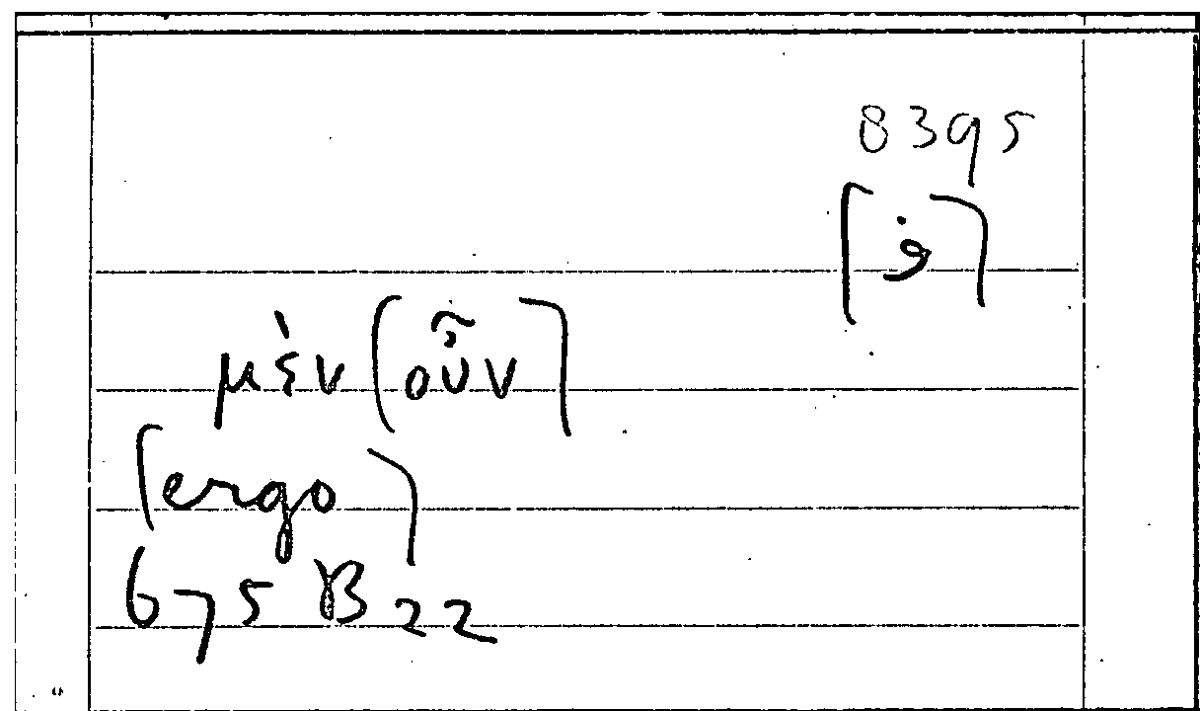 8395
[ف]
μὲν [οὖν]
[ergo]
675 B 22